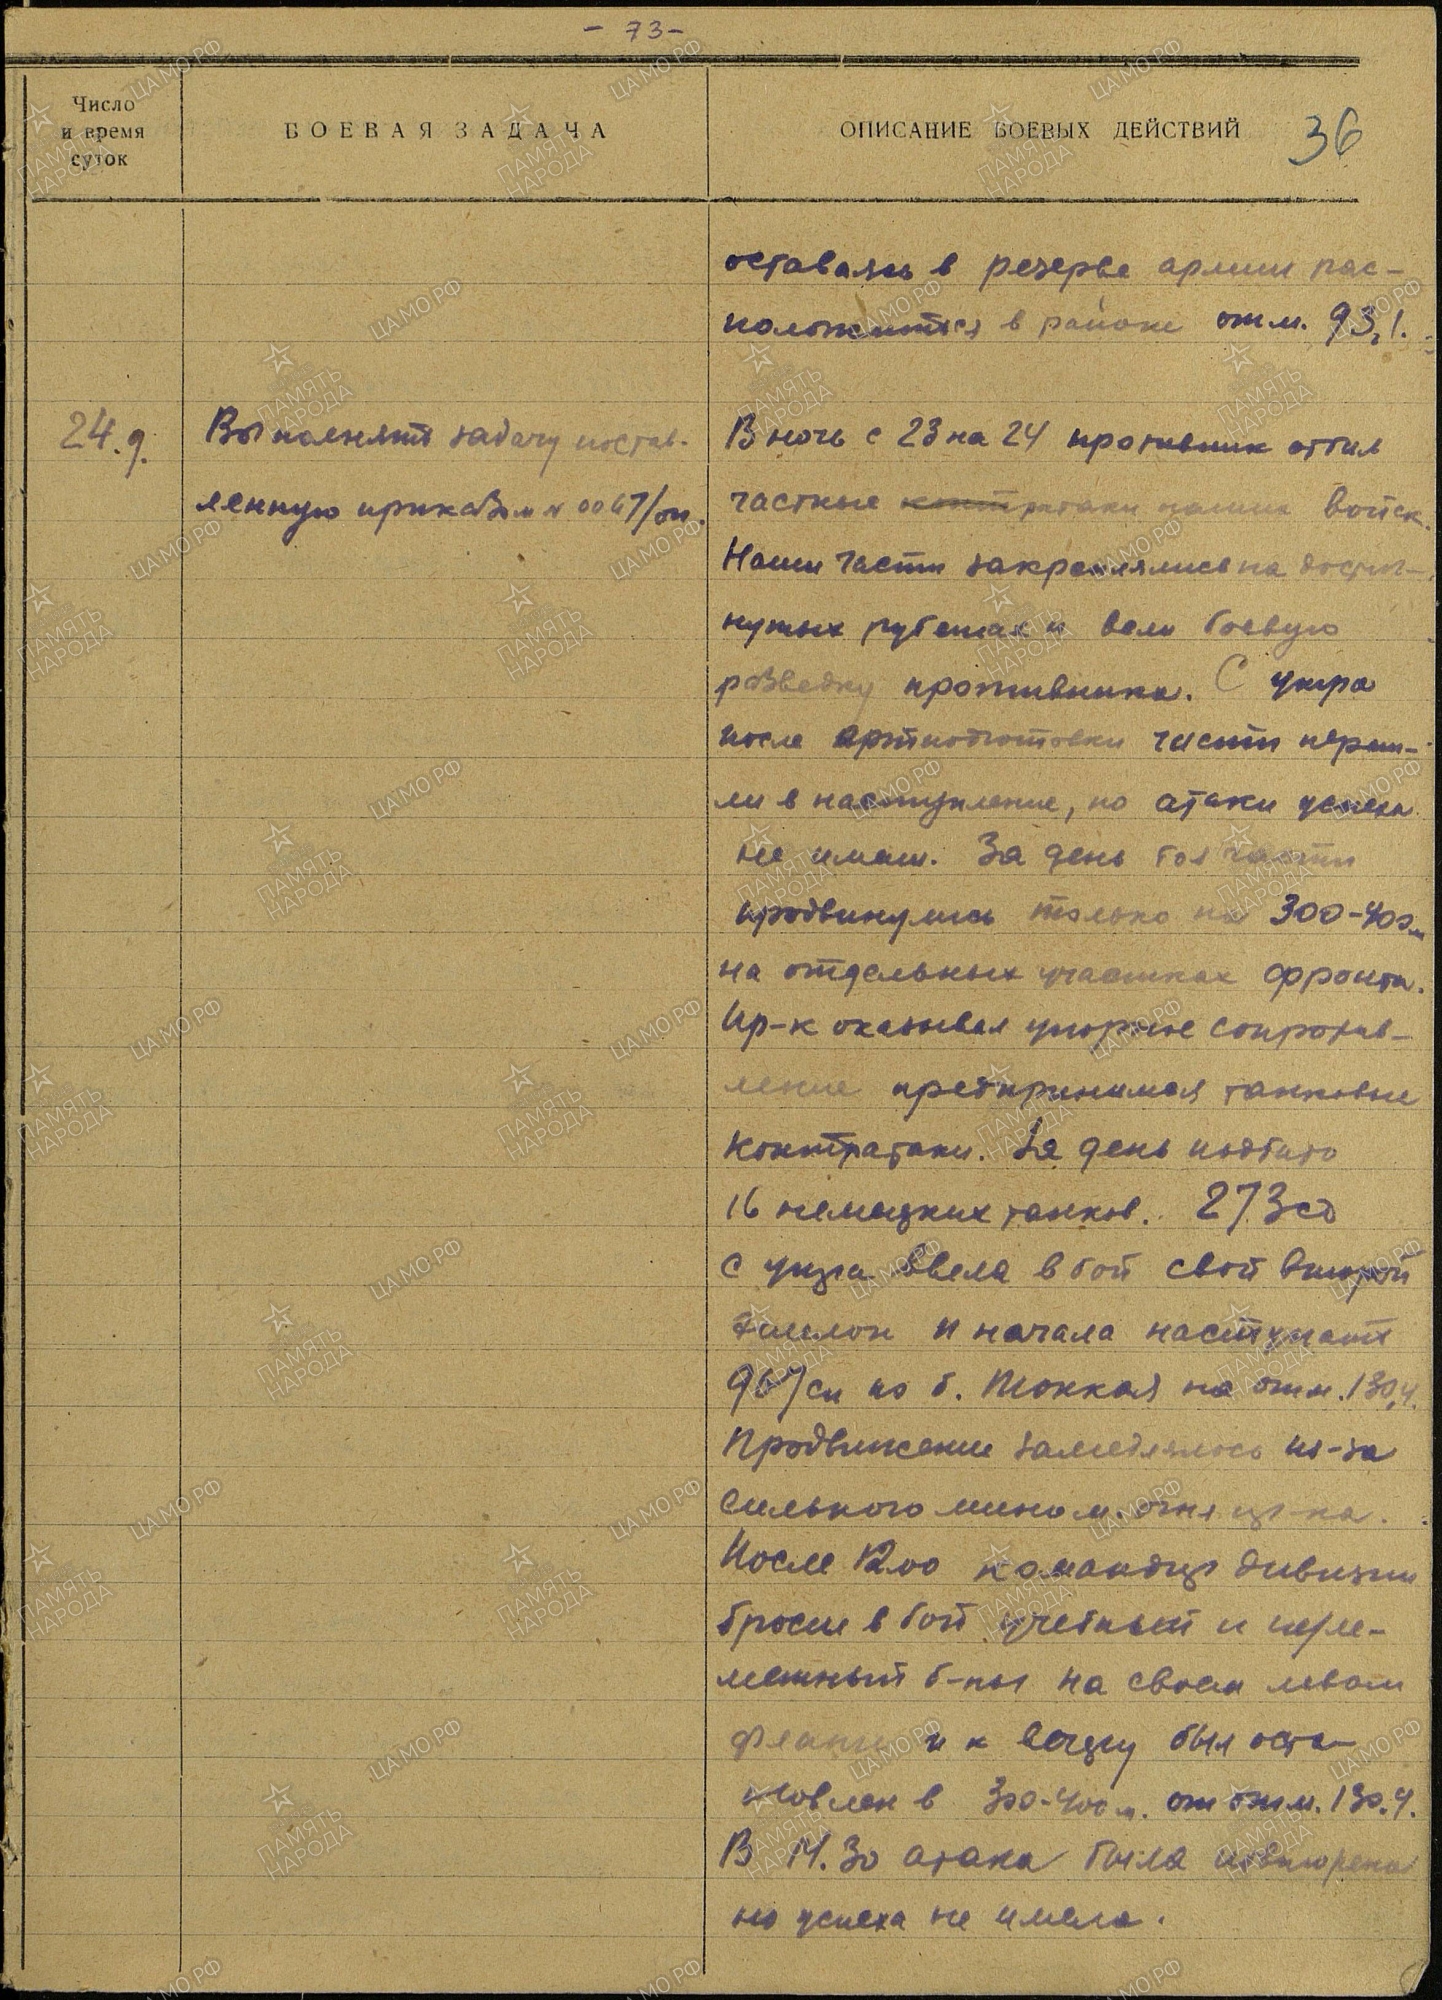 - 73 -
Число
и время
суток
БОЕВАЯ ЗАДАЧА
ОПИСАНИЕ БОЕВЫХ ДЕЙСТВИЙ
36
оставаясь в резерве армии рас-
положиться в районе отм. 93,1.
24.9.
Выполнять задачу постав-
ленную приказом № 0067/оп.
В ночь с 23 на 24 противник отбил
частные контратаки наших войск.
Наши части закреплялись на достиг-
нутых рубежах и вели боевую
разведку противника. С утра
после артподготовки части переш-
ли в наступление, но атаки успеха
не имели. За день боя части
продвинулись только на 300-400м
на отдельных участках фронта.
Пр-к оказывал упорное сопротив-
ление предпринимая танковые
контратаки. За день подбито
16 немецких танков. 273 сд
с утра ввела в бой свой второй
эшелон и начала наступать
967 сп по б. Тонкая на отм. 130,4.
Продвижение замедлялось из-за
сильного мином. огня пр-ка.
После 12.00 командир дивизии
бросил в бой учебный и
б-ны на своем левом
фланге и к вечеру был оста-
новлен в 300-400 м. от отм. 130.4.
В 14.30 атака была повторена
но успеха не имела.
ПАМЯТЬ НАРОДА
ЦА МО РФ